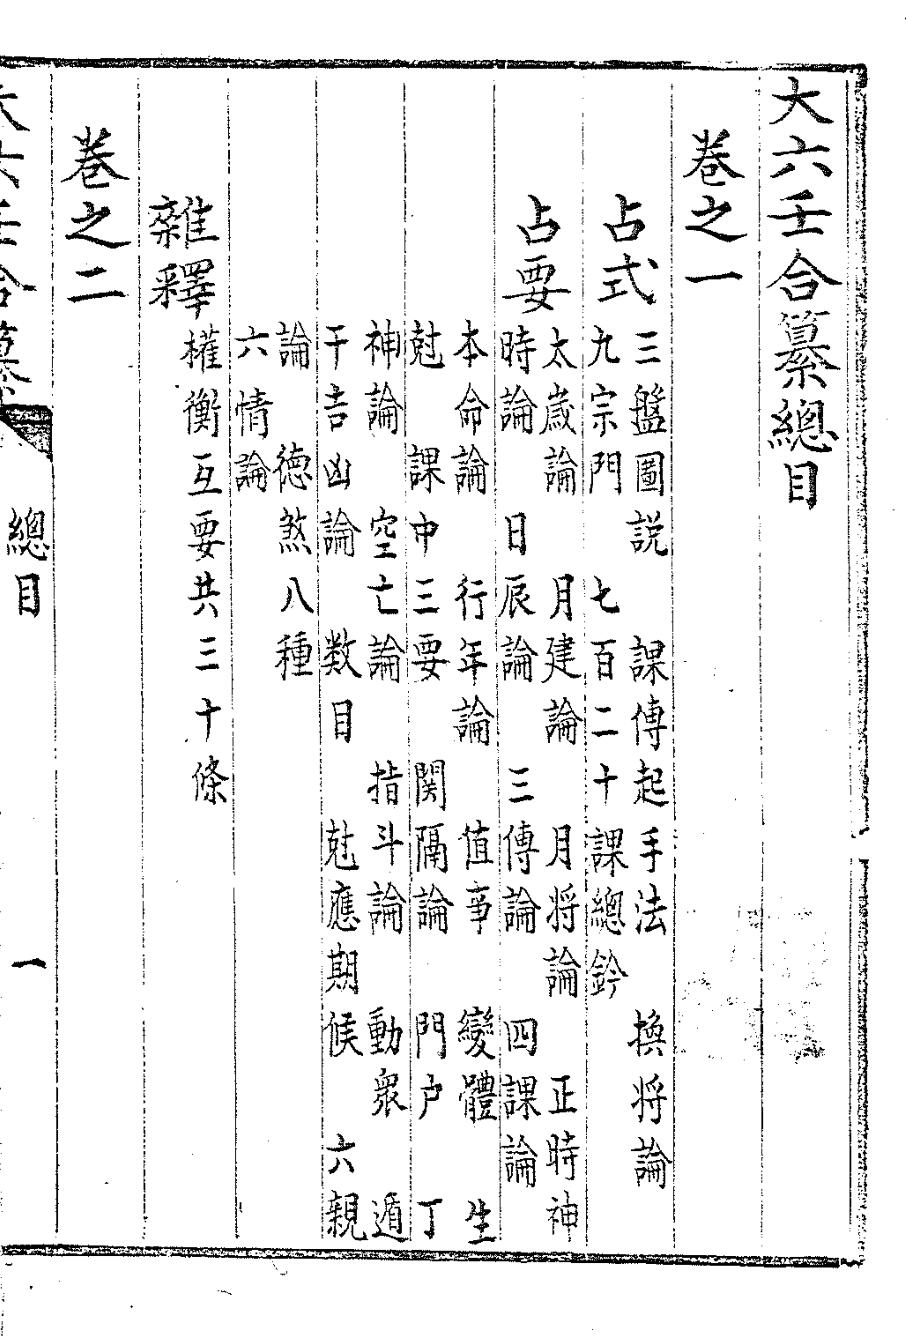 大六壬合纂總目
卷之一
占式
三盤圖説　課傳起手法　換将論
九宗門　七百二十課總鈐
占要
太歲論　月建論　月将論　正時神
時論　日辰論　三傳論　四課論
本命論　行年論　值事　變體　生
尅　課中三要　関隔論　門户　丁
神論　空亡論　指斗論　動衆　遁
干吉凶論　数目　尅應期候　六親
論　德煞八種
六情論
雜釋
權衡互要共三十條
卷之二
大六壬合纂　總目　一